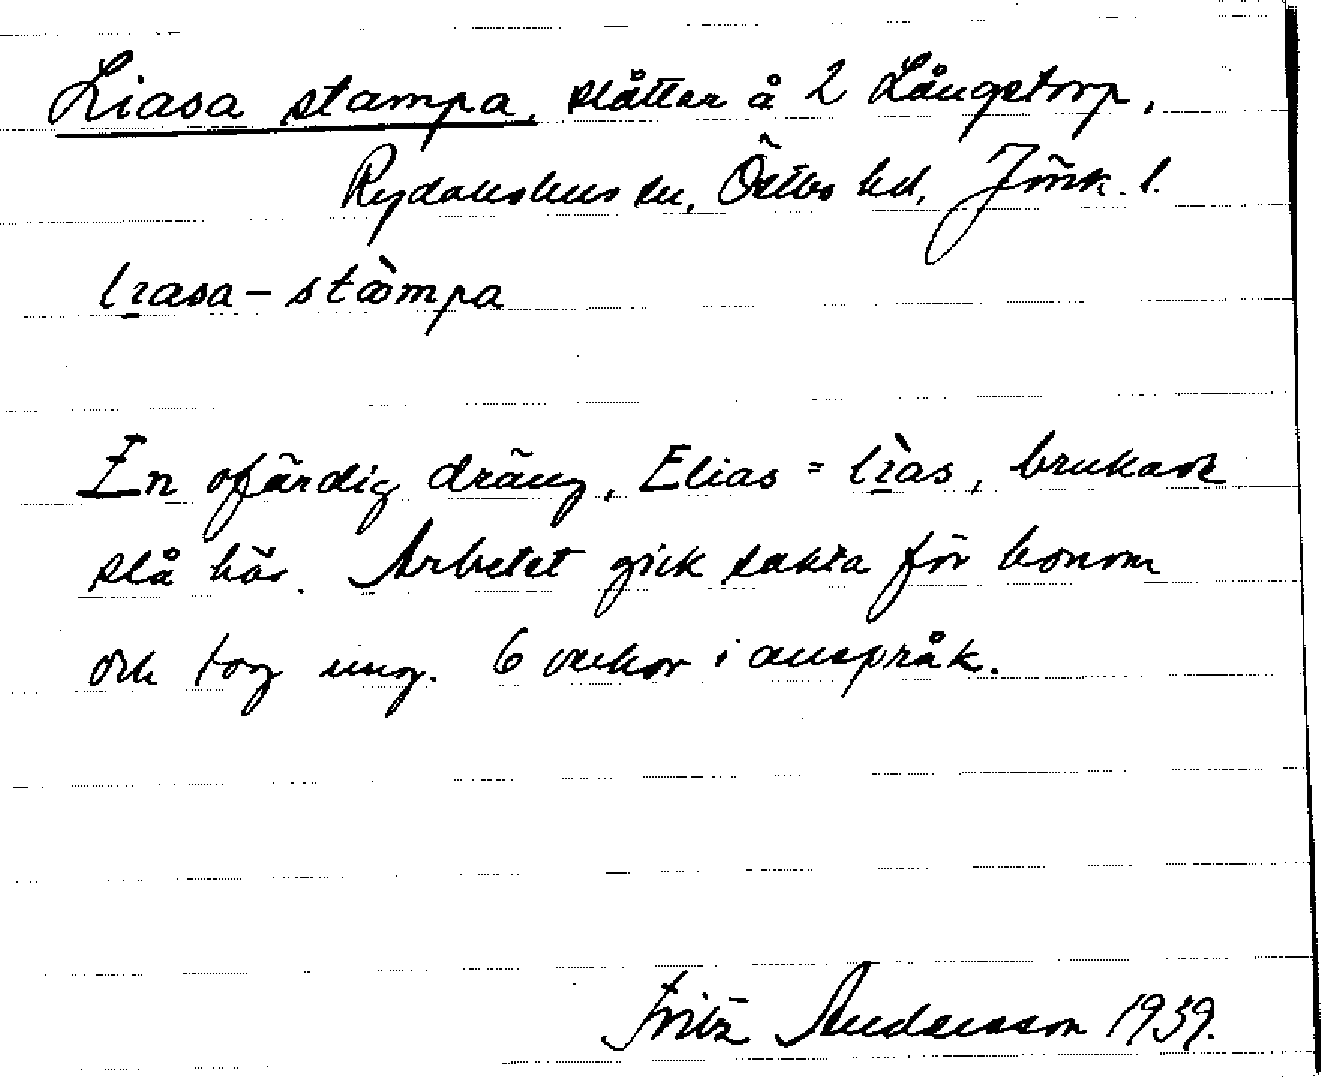 Liasa stampa, slåtter å 2 Långstorp,
Rydaholms sn, Östbo hd, Jönk. l.
lıasa - stàmpa
En ofärdig dräng, Elias = lìas, brukade
slå här. Arbetet gick sakta för honom
och tog ung. 6 veckor i anspråk.
Fritz Andersson 1939.